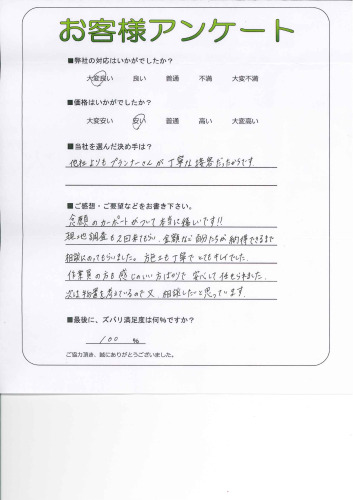 お客様アンケート
■弊社の対応はいかがでしたか？
大変良い 良い 普通 不満 大変不満
■価格はいかがでしたか？
大変安い 安い 普通 高い 大変高い
■当社を選んだ決め手は？
他社よりもプランナーさんが丁寧な接客だったからです
■ご感想・ご要望などをお書き下さい。
念願のカーポートがついて本当に嬉しいです!!
現地調査も2回来てもらい、金額など自分たちが納得できるまで
相談にのってもらいました。方も丁寧でとてもキレイでした。
作業員の方も感じのいい方ばかりで安心して任せられました。
次は物置を考えているので又、相談したいと思っています。
■最後に、ズバリ満足度は何％ですか？
100 %
ご協力頂き、誠にありがとうございました。